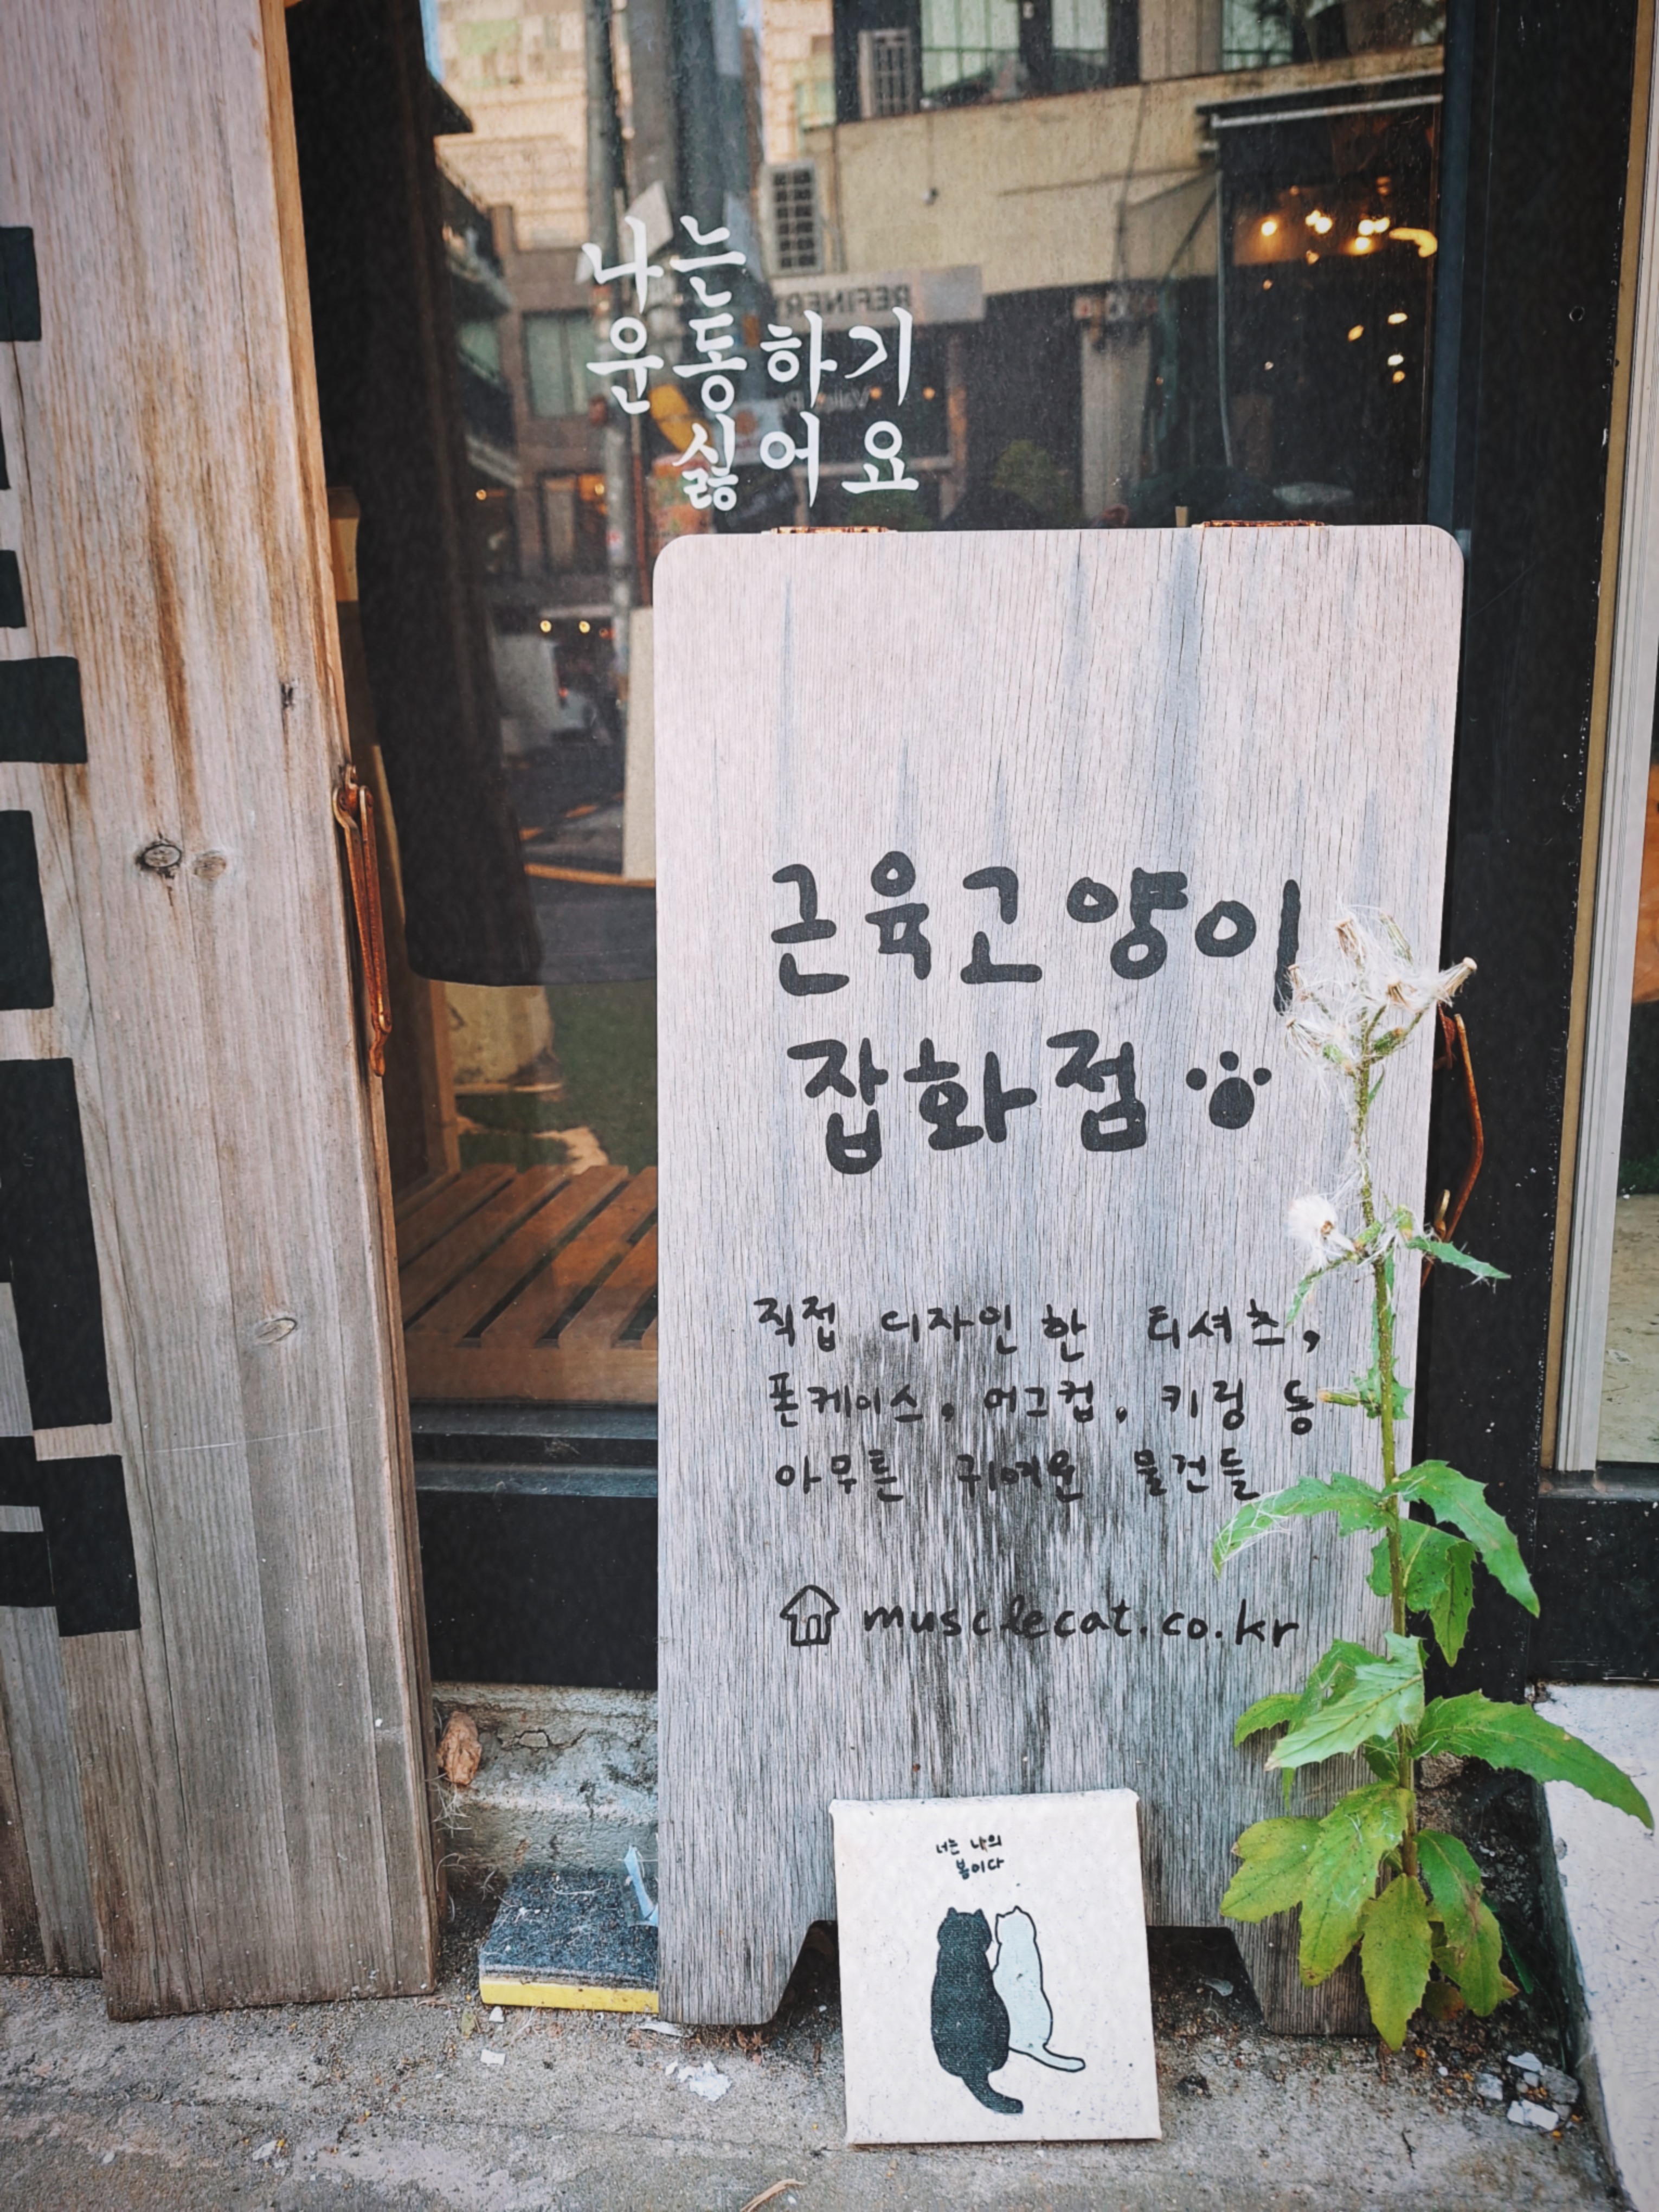 나는
운동하기
싫어요
REFINERY
근육고양이
잡화점
직접 디자인한 티셔츠,
폰케이스, 머그컵, 키링 등
아무튼 귀여운 물건들
musclecat.co.kr
너는 나의
봄이다